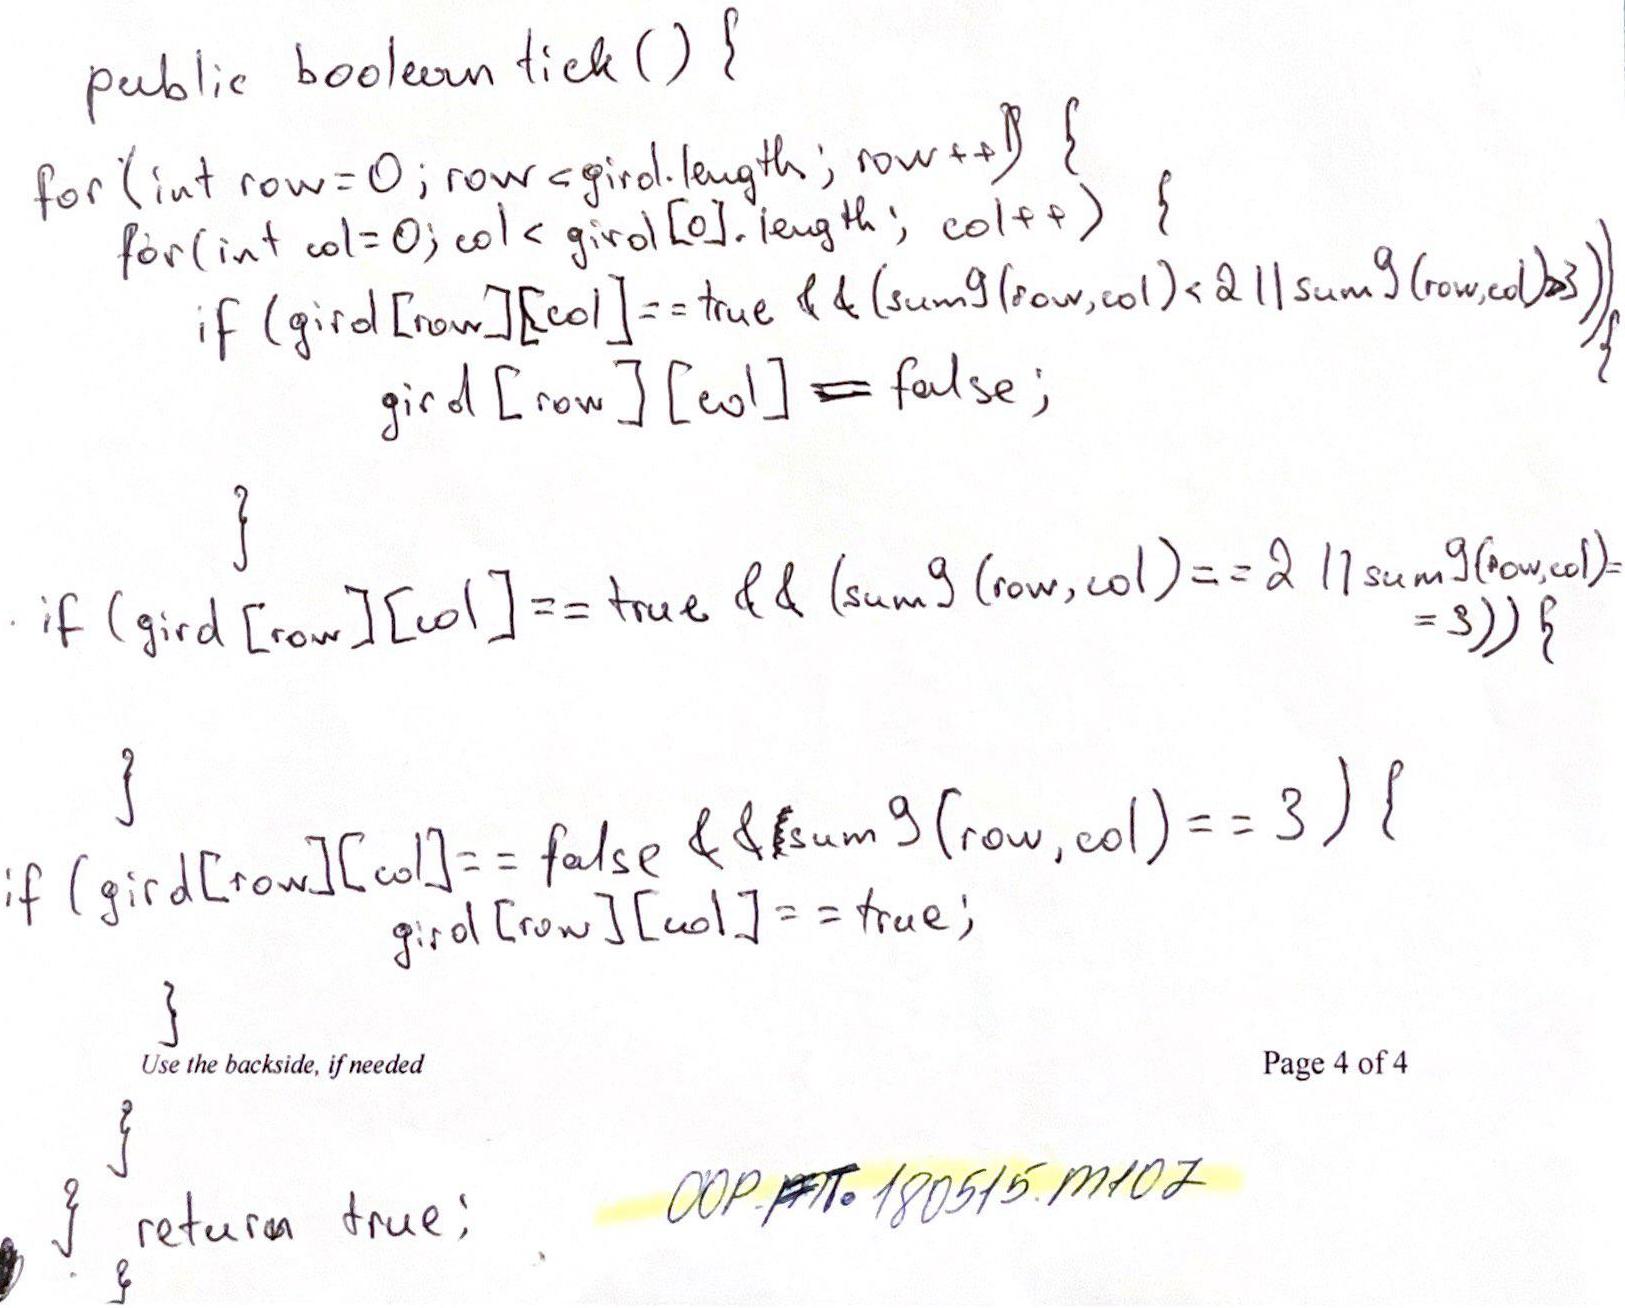 public boolean tick() {
for(int row=0; row<gird.length; row++) {
for(int col=0; col< gird[0].length; col++) {
if (gird[row][col]==true && (sum9(row,col)<2 || sum9(row,col)>3)) {
gird[row][col] = false;
}
if (gird[row][col]==true && (sum9(row,col)==2 || sum9(row,col)=
=3)) {
}
if (gird[row][col]== false && sum9(row,col)==3) {
gird[row][col]==true;
}
Use the backside, if needed
Page 4 of 4
}
} return true;
}
180515.M107